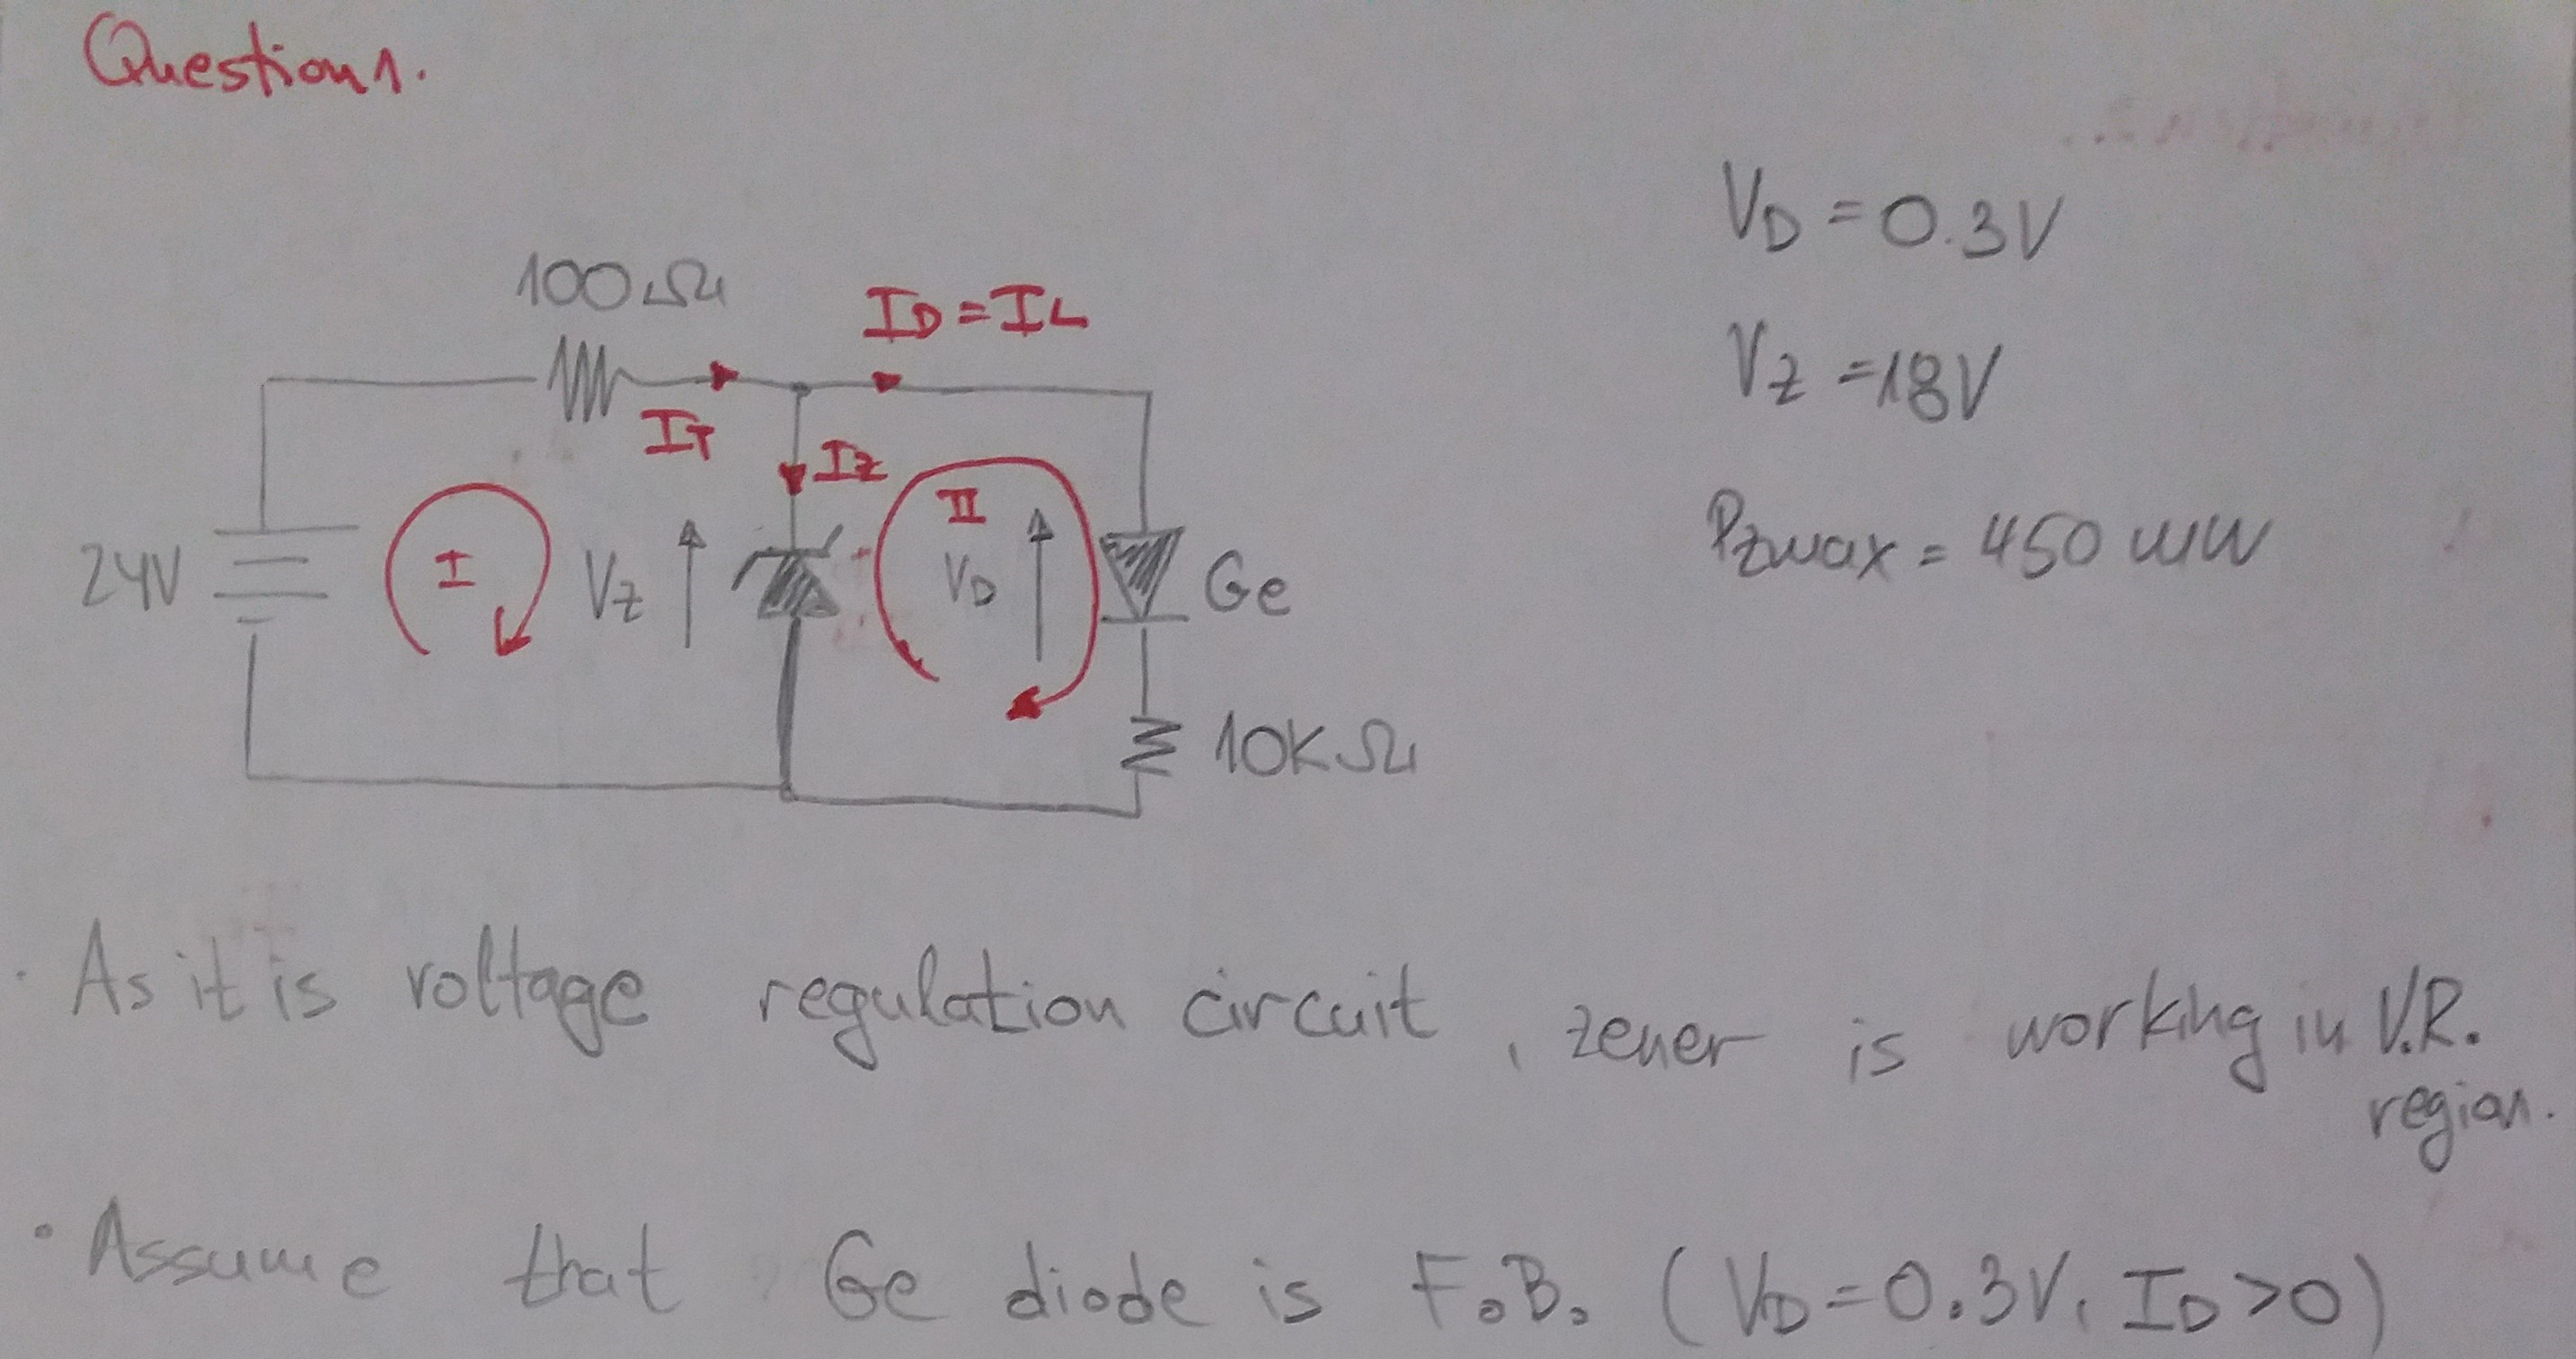 Question 1.
VD = 0.3V
100Ω
ID = IL
VZ = 18V
IT
IZ
II
Pzmax = 450 mW
24V
I
VZ
VD
Ge
10KΩ
. As it is voltage regulation circuit, zener is working in V.R.
region.
• Assume that Ge diode is F.B. (VD=0.3V, ID>0)